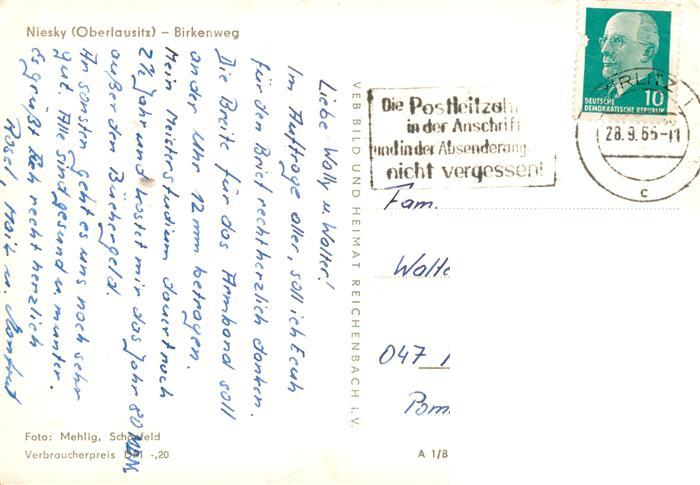 Niesky (Oberlausitz) – Birkenweg
Liebe Wally u. Walter!
Im Auftrage aller, soll ich Euch
für den Brief recht herzlich danken.
Die Breite für das Armband soll
an der Uhr 12 mm betragen.
Mein Meisterstudium dauert noch
2½ Jahr und kostet mir das Jahr 80 MDN
außer den Büchergeld.
Ansonsten geht es uns noch sehr
gut. Alle sind gesund u. munter.
Es grüßt Euch recht herzlich
Rosel, Maik u. Manfred
Foto: Mehlig, Schönfeld
Verbraucherpreis DM -,20
VEB BILD UND HEIMAT REICHENBACH i. V.
A 1/B
Die Postleitzahl
in der Anschrift
und in der Absenderang
nicht vergessen!
GÖRLITZ
28.9.65-11
c
10
DEUTSCHE
DEMOKRATISCHE REPUBLIK
Fam.
Walte
047
Pom